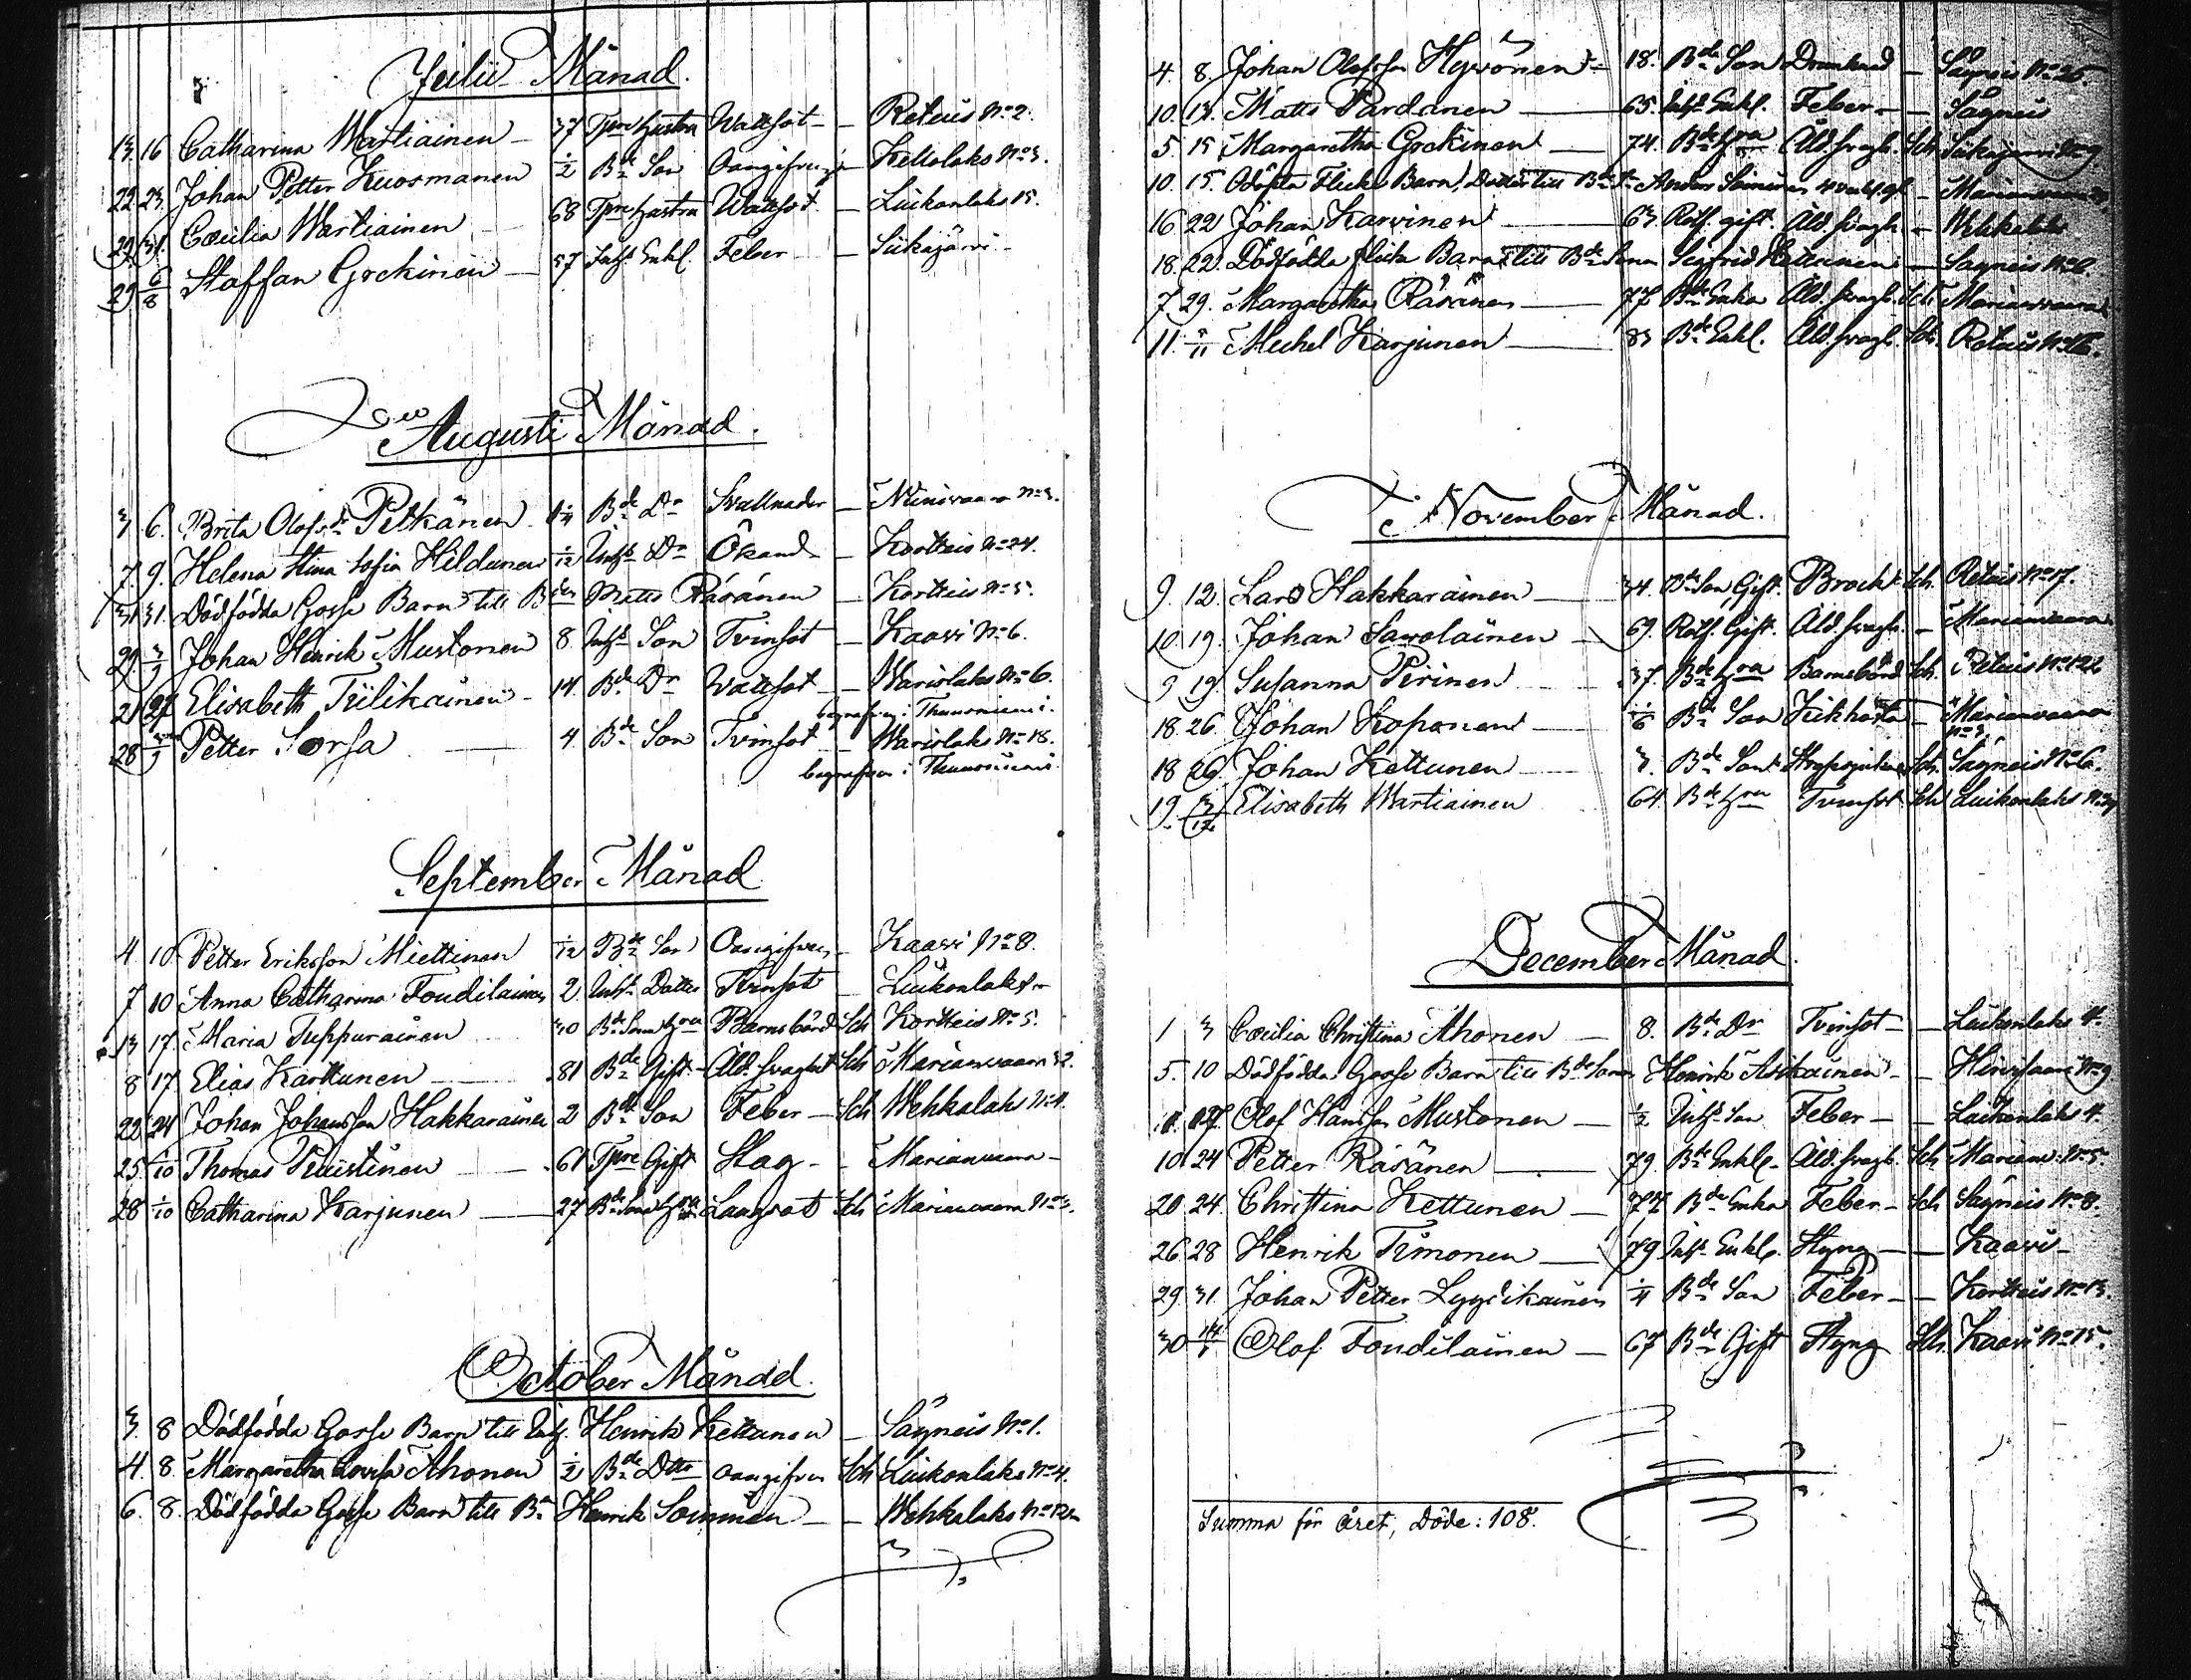 Julii Månad.
13 16 Catharina Martiainen 37 Tpre Hustru Wattsot Retuis No 2.
22 23 Johan Petter Kuosmanen 1/2 Bde Son Oangifven Keltolaks No 3.
29 31. Cœcilia Martiainen 68 Tpre Hustru Wattsot Luikonlaks 15.
29 6/8 Staffan Gockinen 57 Inhs Enkl. Feber Siikajärvi
Augusti Månad.
3 6. Brita Olofsdr Pelkänen 1/4 Bde Dr Svallnader Niinivaara No 3.
7. 9. Helena Stina Sofia Hildunen 1/12 Inhs Dr Okänd Kortteis No 24.
31 31. Dödfödda Gosse Barn till Bden Matts Räsänen Kortteis No 5.
29 3/9 Johan Henrik Mustonen 8 Inhs Son Tvinsot Kaavi No 6.
21 27 Elisabeth Tiilikainen 14. Bde Dr Wattsot Wariolaks No 6.
begrafven i Thuusniemi.
28 /9 Petter Sorsa 4. Bde Son Tvinsot Wariolaks No 18.
begrafven i Thuusniemi.
September Månad
4 10 Petter Eriksson Miettinen 1/12 Bde Son Oangifven Kaavi No 8.
7 10 Anna Catharina Toudilainen 2. Inhs Dotter Tvinsot Luikonlaks
13 17. Maria Tuppurainen 30 Bde Sons Hru Barnsbörd Sch Kortteis No 5.
8 17 Elias Karttunen 81 Bde Gift Åld. svaghet Sch Marianvaara 32.
22 24 Johan Johansson Hakkarainen 2 Bde Son Feber Sch Wehkalaks No 4.
25 1/10 Thomas Puustinen 61 Tpre Gift Slag Marianvaara
28 1/10 Catharina Karjunen 27 Bde Sons Hru Lungsot Sch Marianvaara No 3.
October Månad.
3. 8 Dödfödda Gosse Barn till Inhs. Henrik Kettunen Säyneis No 1.
4. 8. Margaretha Lovisa Ahonen 1/2 Bde Dtter Oangifven Sch Luikonlaks No 4.
6. 8. Dödfödda Gosse Barn till Bn Henrik Soininen Wehkalaks No 12
4. 8. Johan Olofsson Hyvönen 18. Bde Son Drunknad Säyneis No 26.
10. 13. Matts Pardanen 65. Inhs Enkl. Feber Säyneis
5. 15 Margaretha Gockinen 74. Bde Hru Åld. svagh. Sch Siikajärvi No 9
10. 15. Odöpta Flicke Barn, Dotter till Bde Sn Anders Soininen Marianvaara
16 22 Johan Karvinen 63 Rotf. gift. Åld. svagh Wehkalaks
18. 22. Dödfödda flicke Barnet till Bde Sonen Sigfrid Kettunen Säyneis No 6
7 29. Margaretha Räsänen 77 Bde Enka Åld. svagh. Sch Marianvaara
11. /11 Michel Karjunen 83 Bde Enkl. Åld. svagh. Sch. Retuis No 16.
November Månad.
9. 12. Lars Hakkarainen 34. Bde Son Gift. Bråck Sch. Retuis No 17.
10 19. Johan Savolainen 69. Rotf. Gift. Åld. svagh. Marianvaara
9 19. Susanna Pirinen 37. Bde Hru Barnsbörd Sch. Retuis No 122
18. 26. Johan Koponen 1/6 Bde Son Kikhosta Marianvaara
No 3.
18 26. Johan Kettunen 3. Bde Son Strypsjukan Sch. Säyneis No 6.
19. 3/12 Elisabeth Martiainen 64. Bde Hru Tvinsot Sch Luikonlaks
December Månad.
1 3 Cœcilia Christina Ahonen 8. Bde Dr Tvinsot Luikonlaks 4.
5. 10 Dödfödda Gosse Barn till Bde Sonen Henrik Asikainen Hirvisaari No 9
17. Olof Hansson Mustonen 1/2 Inhs Son Feber Luikonlaks 4.
10 24 Petter Räsänen 79. Bde Enkl. Åld. svagh. Sch Marianv. No 5.
20 24. Christina Kettunen 77 Bde Enka Feber Sch Säyneis No 8.
26 28 Henrik Timonen 79 Inhs Enkl. Styng Kaavi
29. 31. Johan Petter Lyydikäinen 1/4 Bde Son Feber Kortteis No 13.
30 14/1 Olof Toudilainen 67 Bde Gift Styng Sch. Kaavi No 15.
Summa för året, döde: 108.